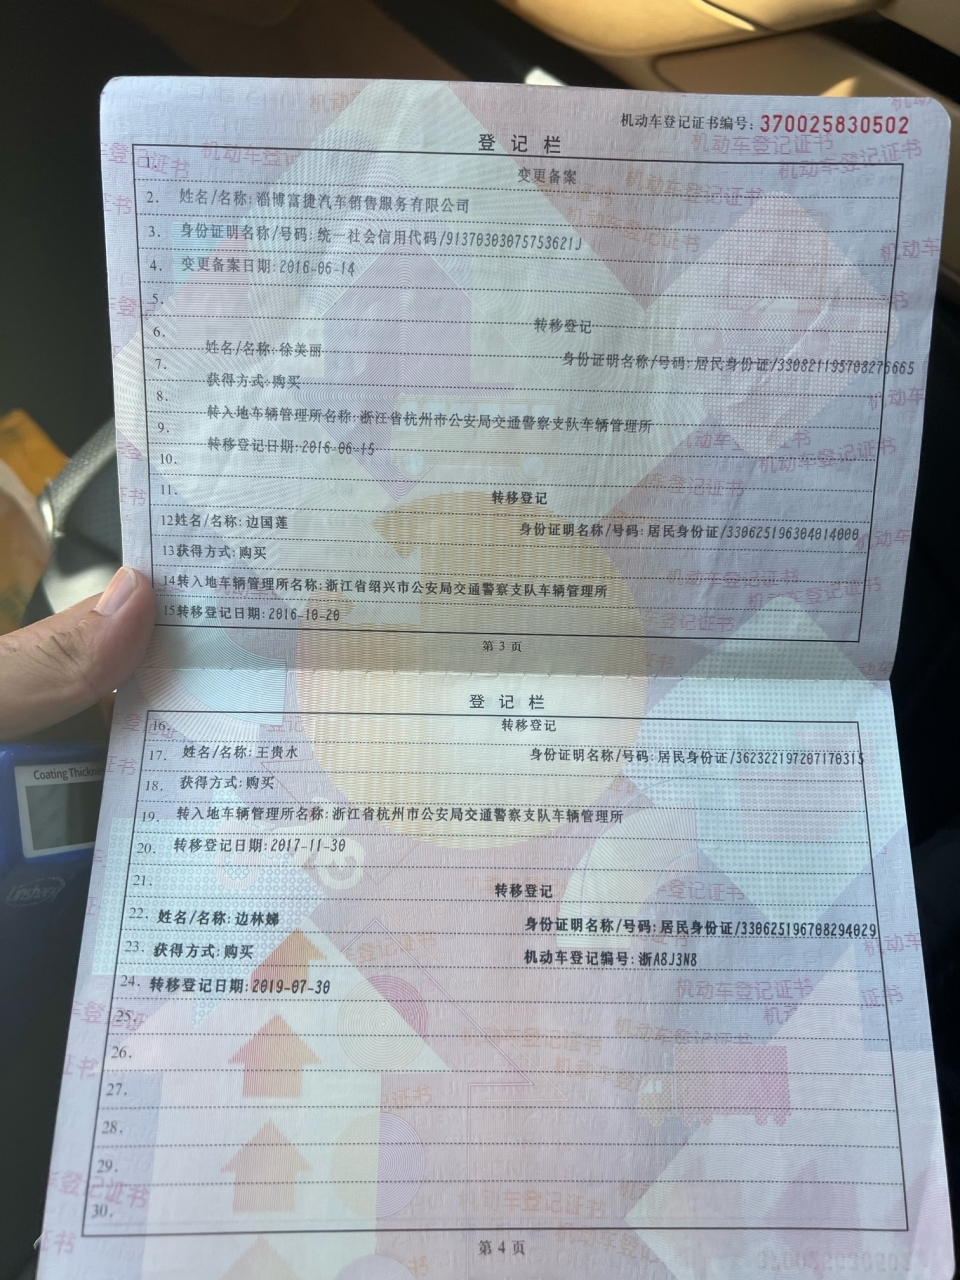 机动车登记证书编号：370025830502
登记栏
1. 变更备案
2. 姓名/名称:淄博富捷汽车销售服务有限公司
3. 身份证明名称/号码:统一社会信用代码/91370303075753621J
4. 变更备案日期:2016-06-14
5.
6. 转移登记
姓名/名称:徐美丽 身份证明名称/号码:居民身份证/330821195708276665
7.
获得方式:购买
8.
转入地车辆管理所名称:浙江省杭州市公安局交通警察支队车辆管理所
9.
转移登记日期:2016-06-15
10.
11. 转移登记
12姓名/名称:边国莲 身份证明名称/号码:居民身份证/330625196304014000
13获得方式:购买
14转入地车辆管理所名称:浙江省绍兴市公安局交通警察支队车辆管理所
15转移登记日期:2016-10-20
第 3 页
登记栏
16. 转移登记
17. 姓名/名称:王贵水 身份证明名称/号码:居民身份证/362322197207170315
18. 获得方式:购买
19. 转入地车辆管理所名称:浙江省杭州市公安局交通警察支队车辆管理所
20. 转移登记日期:2017-11-30
21. 转移登记
22. 姓名/名称:边林娣 身份证明名称/号码:居民身份证/330625196708294029
23. 获得方式:购买 机动车登记编号:浙A8J3N8
24. 转移登记日期:2019-07-30
25.
26.
27.
28.
29.
30.
第 4 页
Coating Thickne